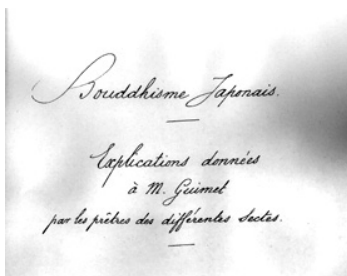 Bouddhisme Japonais.
Explications données
à M. Guimet
par les prêtres des différentes Sectes.